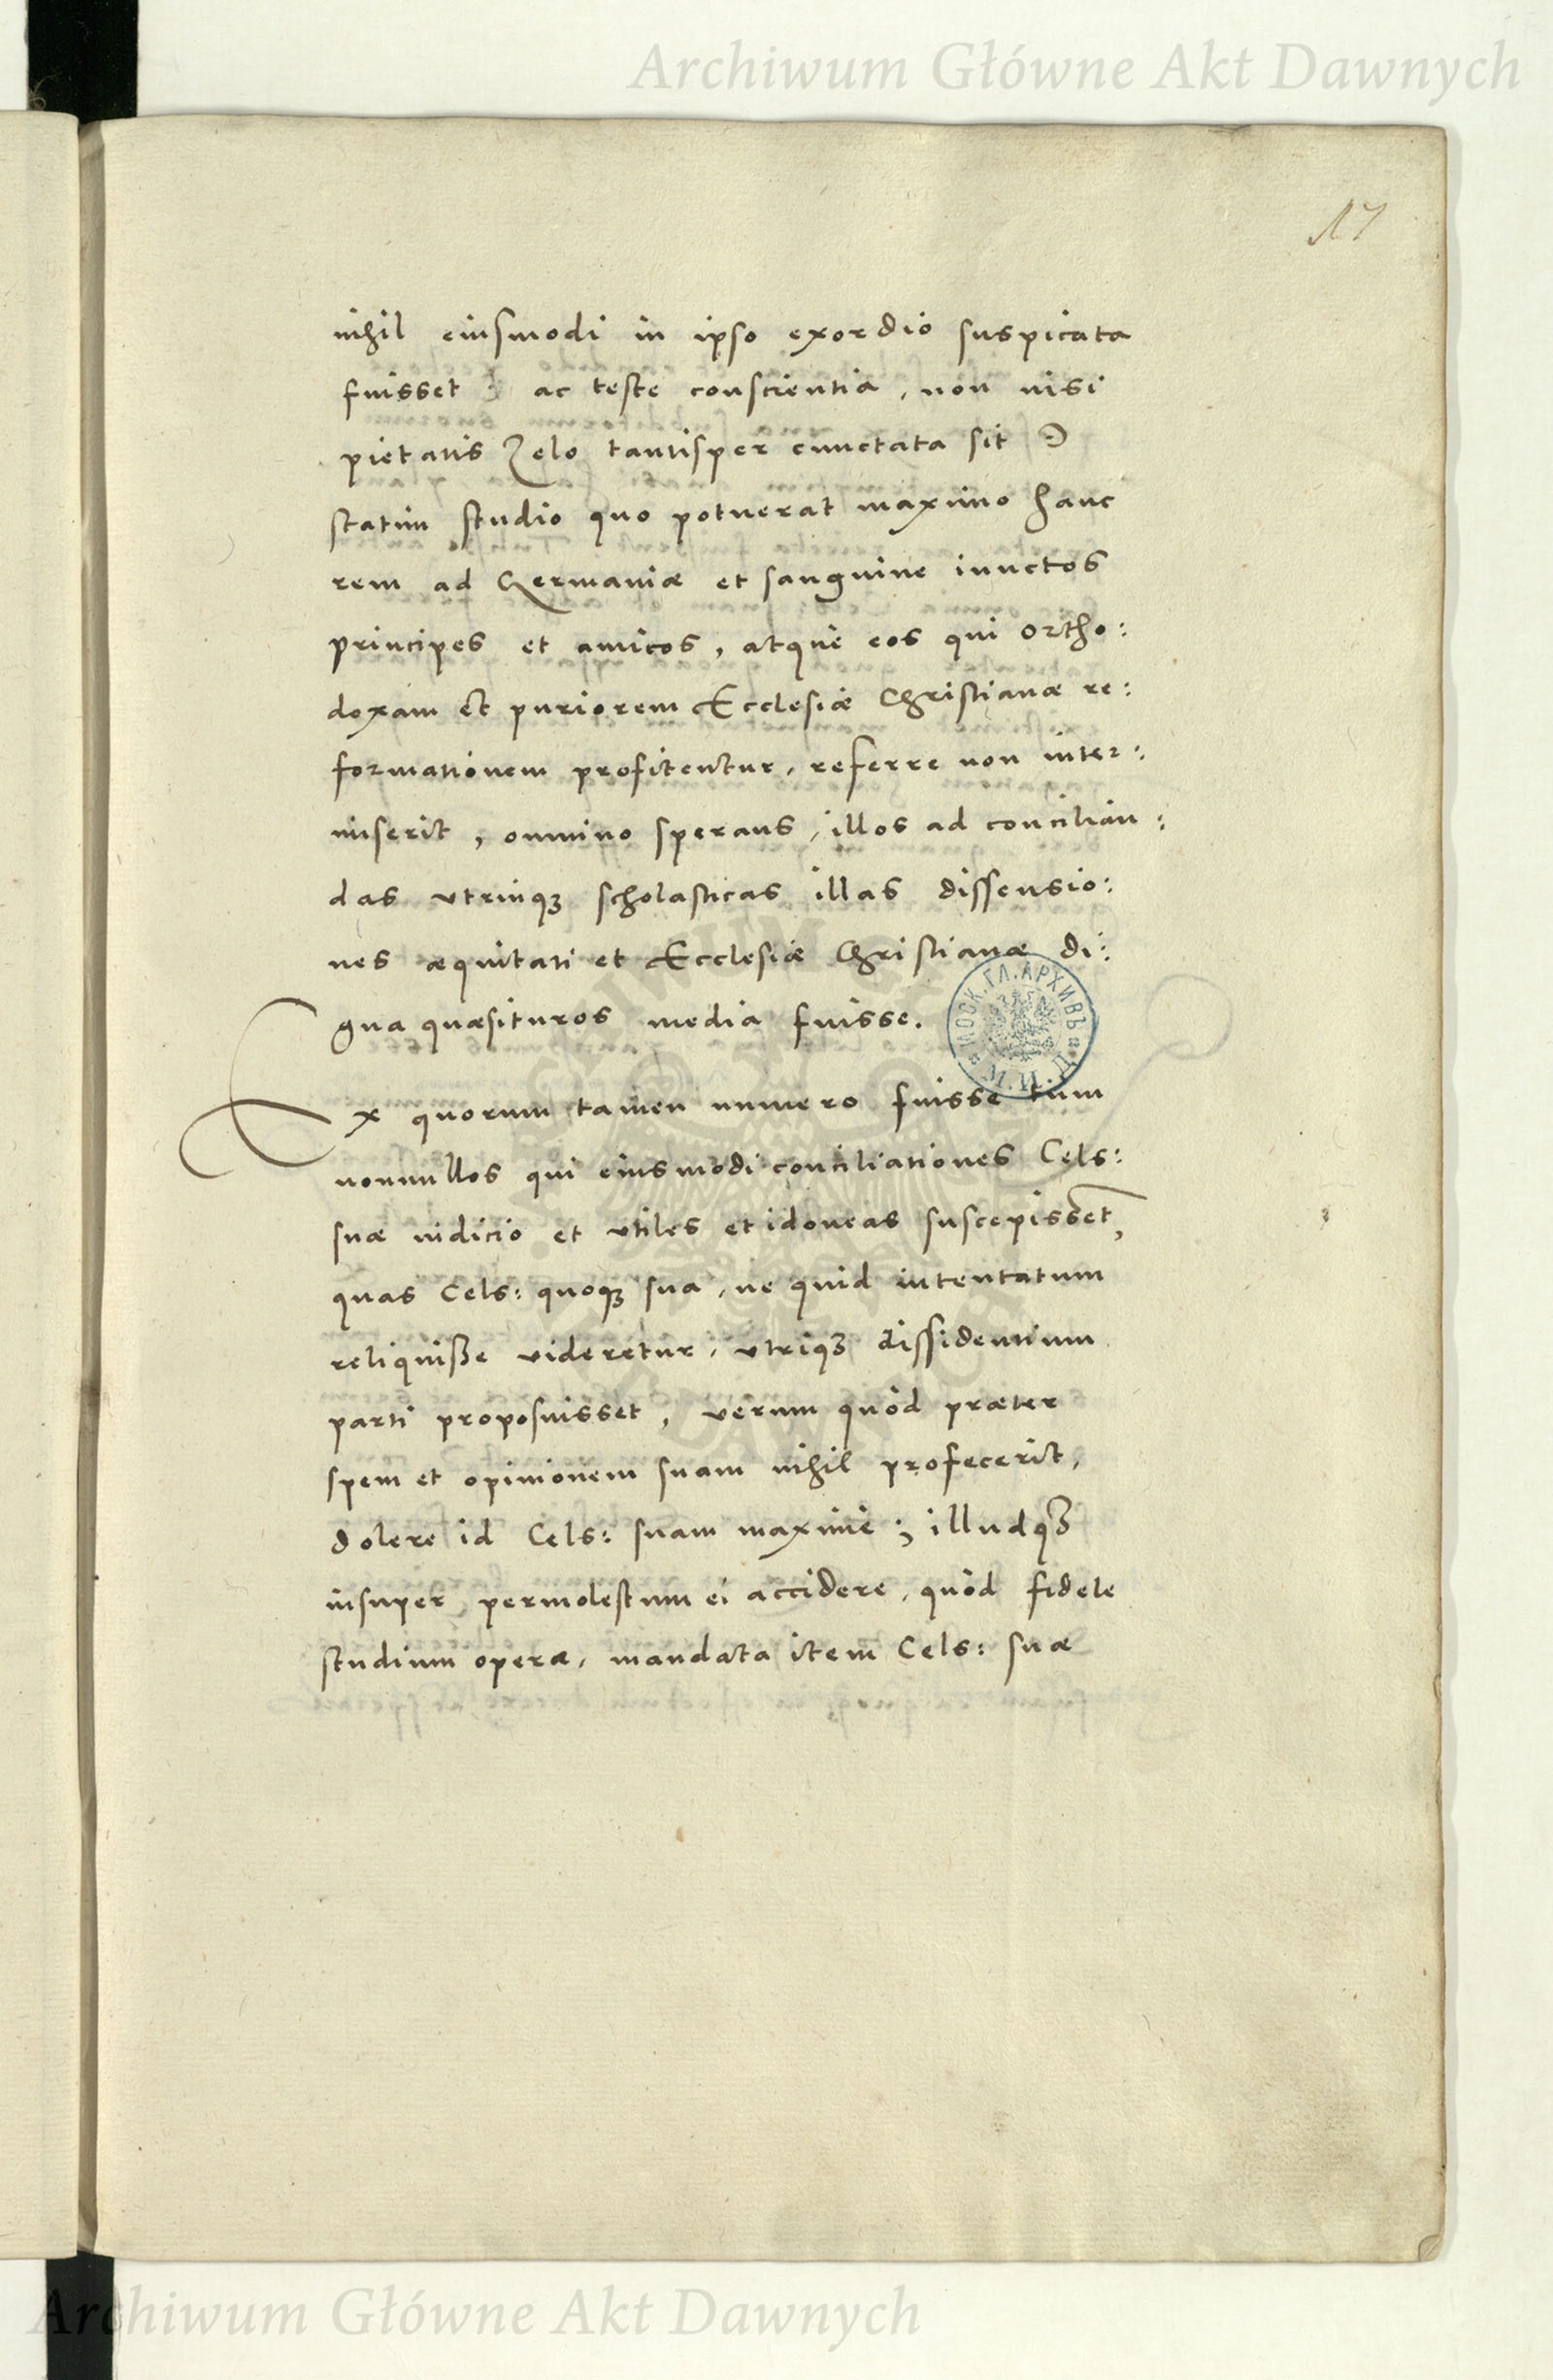 Archiwum Główne Akt Dawnych
17
nihil eiusmodi in ipso exordio suspicata
fuisset ac teste conscientia, non nisi
pietatis Zelo tantisper cunctata sit
statim studio quo potuerat maximo hanc
rem ad Germaniæ et sanguine iunctos
principes et amicos, atque eos qui ortho:
doxam et puriorem Ecclesiæ Christianæ re:
formationem profitentur, referre non inter:
miserit, omnino sperans, illos ad concilian:
das vtrinqȝ scholasticas illas dissensio:
nes æquitati et Ecclesiæ Christianæ di:
gna quæsituros media fuisse.
МОСК. ГЛ. АРХИВЪ
Ex quorum tamen numero fuisse tum
nonnullos qui eiusmodi conciliationes Cels:
suæ iudicio et vtiles et idoneas suscepissent,
quas Cels: quoqȝ sua, ne quid intentatum
reliquiße videretur, vtriqȝ dissidentium
parti proposuisset, verum quòd præter
spem et opinionem suam nihil profecerit,
dolere id Cels: suam maximè; illudqȝ
insuper permolestum ei accidere, quòd fidele
studium operæ, mandata item Cels: suæ
Archiwum Główne Akt Dawnych